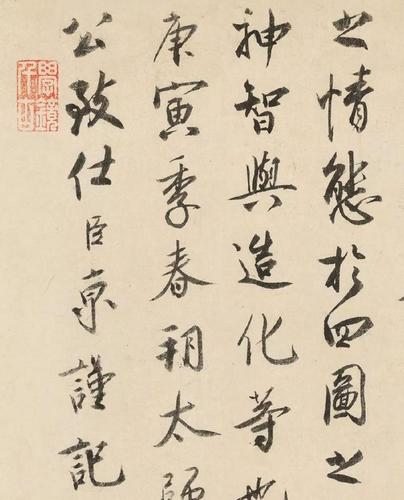 之情態於四圖之
神智與造化等也
庚寅季春朔太師
公致仕臣京謹記